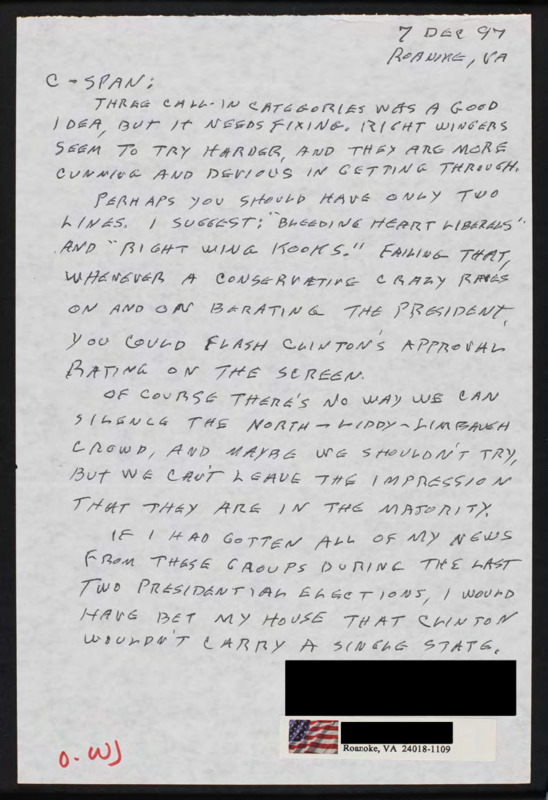 7 DEC 97
ROANOKE, VA
C-SPAN:
THREE CALL-IN CATEGORIES WAS A GOOD
IDEA, BUT IT NEEDS FIXING. RIGHT WINGERS
SEEM TO TRY HARDER, AND THEY ARE MORE
CUNNING AND DEVIOUS IN GETTING THROUGH.
PERHAPS YOU SHOULD HAVE ONLY TWO
LINES. I SUGGEST: "BLEEDING HEART LIBERELS"
AND "RIGHT WING KOOKS." FAILING THAT,
WHENEVER A CONSERVATIVE CRAZY RAVES
ON AND ON BERATING THE PRESIDENT,
YOU COULD FLASH CLINTON'S APPROVAL
RATING ON THE SCREEN.
OF COURSE THERE'S NO WAY WE CAN
SILENCE THE NORTH-LIDDY-LIMBAUGH
CROWD, AND MAYBE WE SHOULDN'T TRY,
BUT WE CAN'T LEAVE THE IMPRESSION
THAT THEY ARE IN THE MAJORITY.
IF I HAD GOTTEN ALL OF MY NEWS
FROM THESE GROUPS DURING THE LAST
TWO PRESIDENTIAL ELECTIONS, I WOULD
HAVE BET MY HOUSE THAT CLINTON
WOULDN'T CARRY A SINGLE STATE.
Roanoke, VA 24018-1109